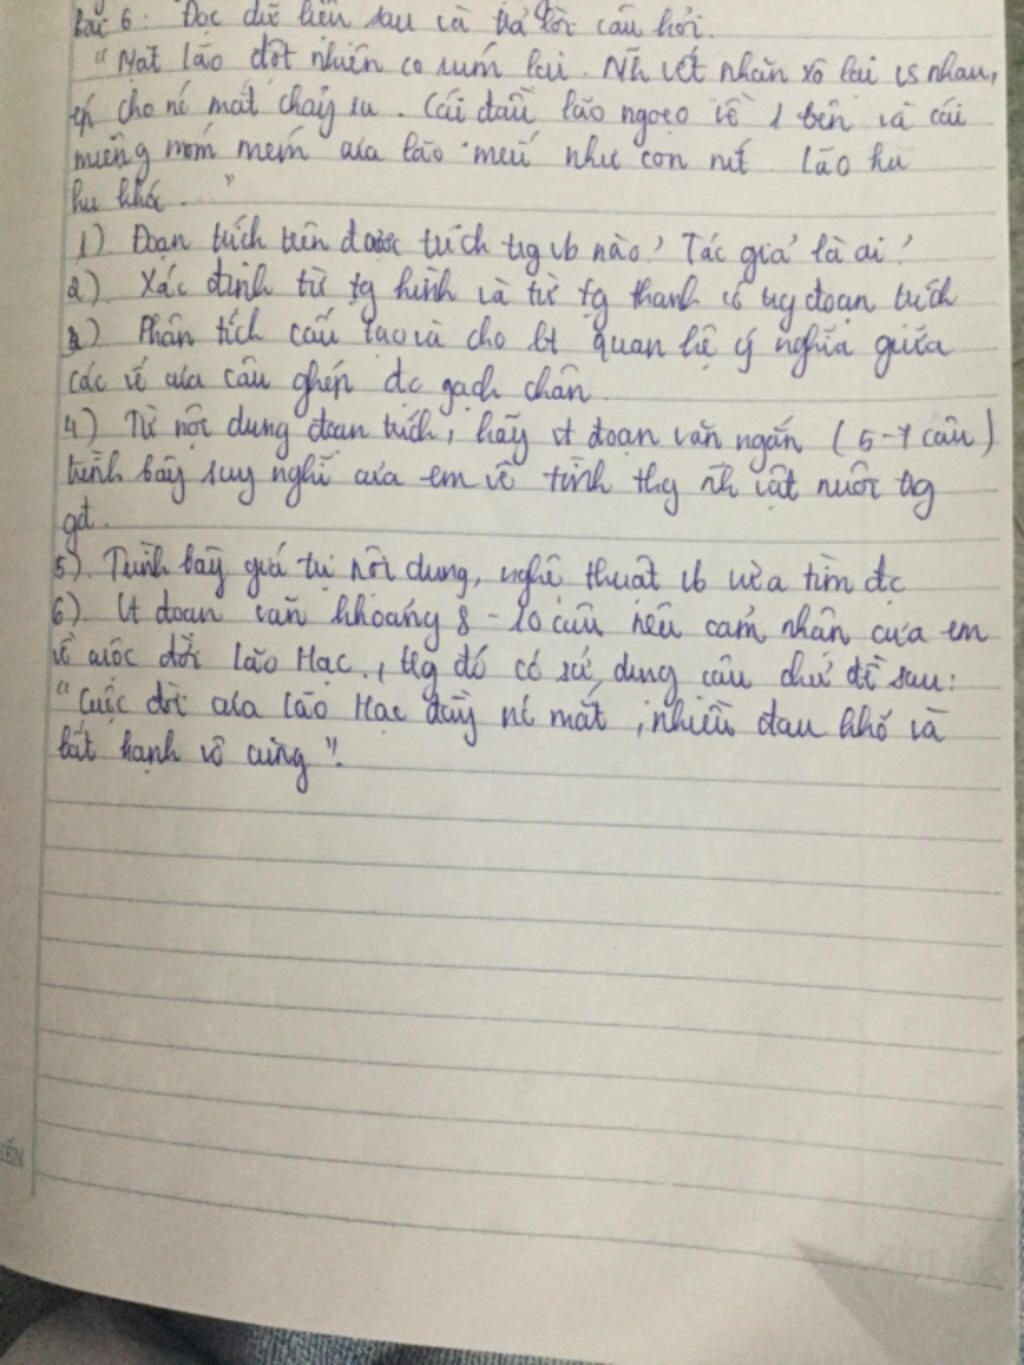 Bài 6: Đọc dữ liệu sau và trả lời câu hỏi.
"Mặt lão đột nhiên co rúm lại. Nh vết nhăn xô lại vs nhau,
ép cho nc mắt chảy ra. Cái đầu lão ngoẹo về 1 bên và cái
miệng móm mém của lão mếu như con nít. Lão hu
hu khóc..."
1) Đoạn trích trên được trích trg vb nào? Tác giả là ai?
2) Xác định từ tg hình và từ tg thanh có trg đoạn trích
3) Phân tích cấu tạo và cho bt quan hệ ý nghĩa giữa
các vế của câu ghép đc gạch chân.
4) Từ nội dung đoạn trích, hãy vt đoạn văn ngắn (5-7 câu)
trình bày suy nghĩ của em về tình thg vh vật nuôi trg
gđ.
5) Trình bày giá trị nội dung, nghệ thuật vb vừa tìm đc
6) Vt đoạn văn khoảng 8-10 câu nêu cảm nhận của em
về cuộc đời lão Hạc, trg đó có sử dụng câu chủ đề sau:
"Cuộc đời của lão Hạc đầy nc mắt, nhiều đau khổ và
bất hạnh vô cùng".